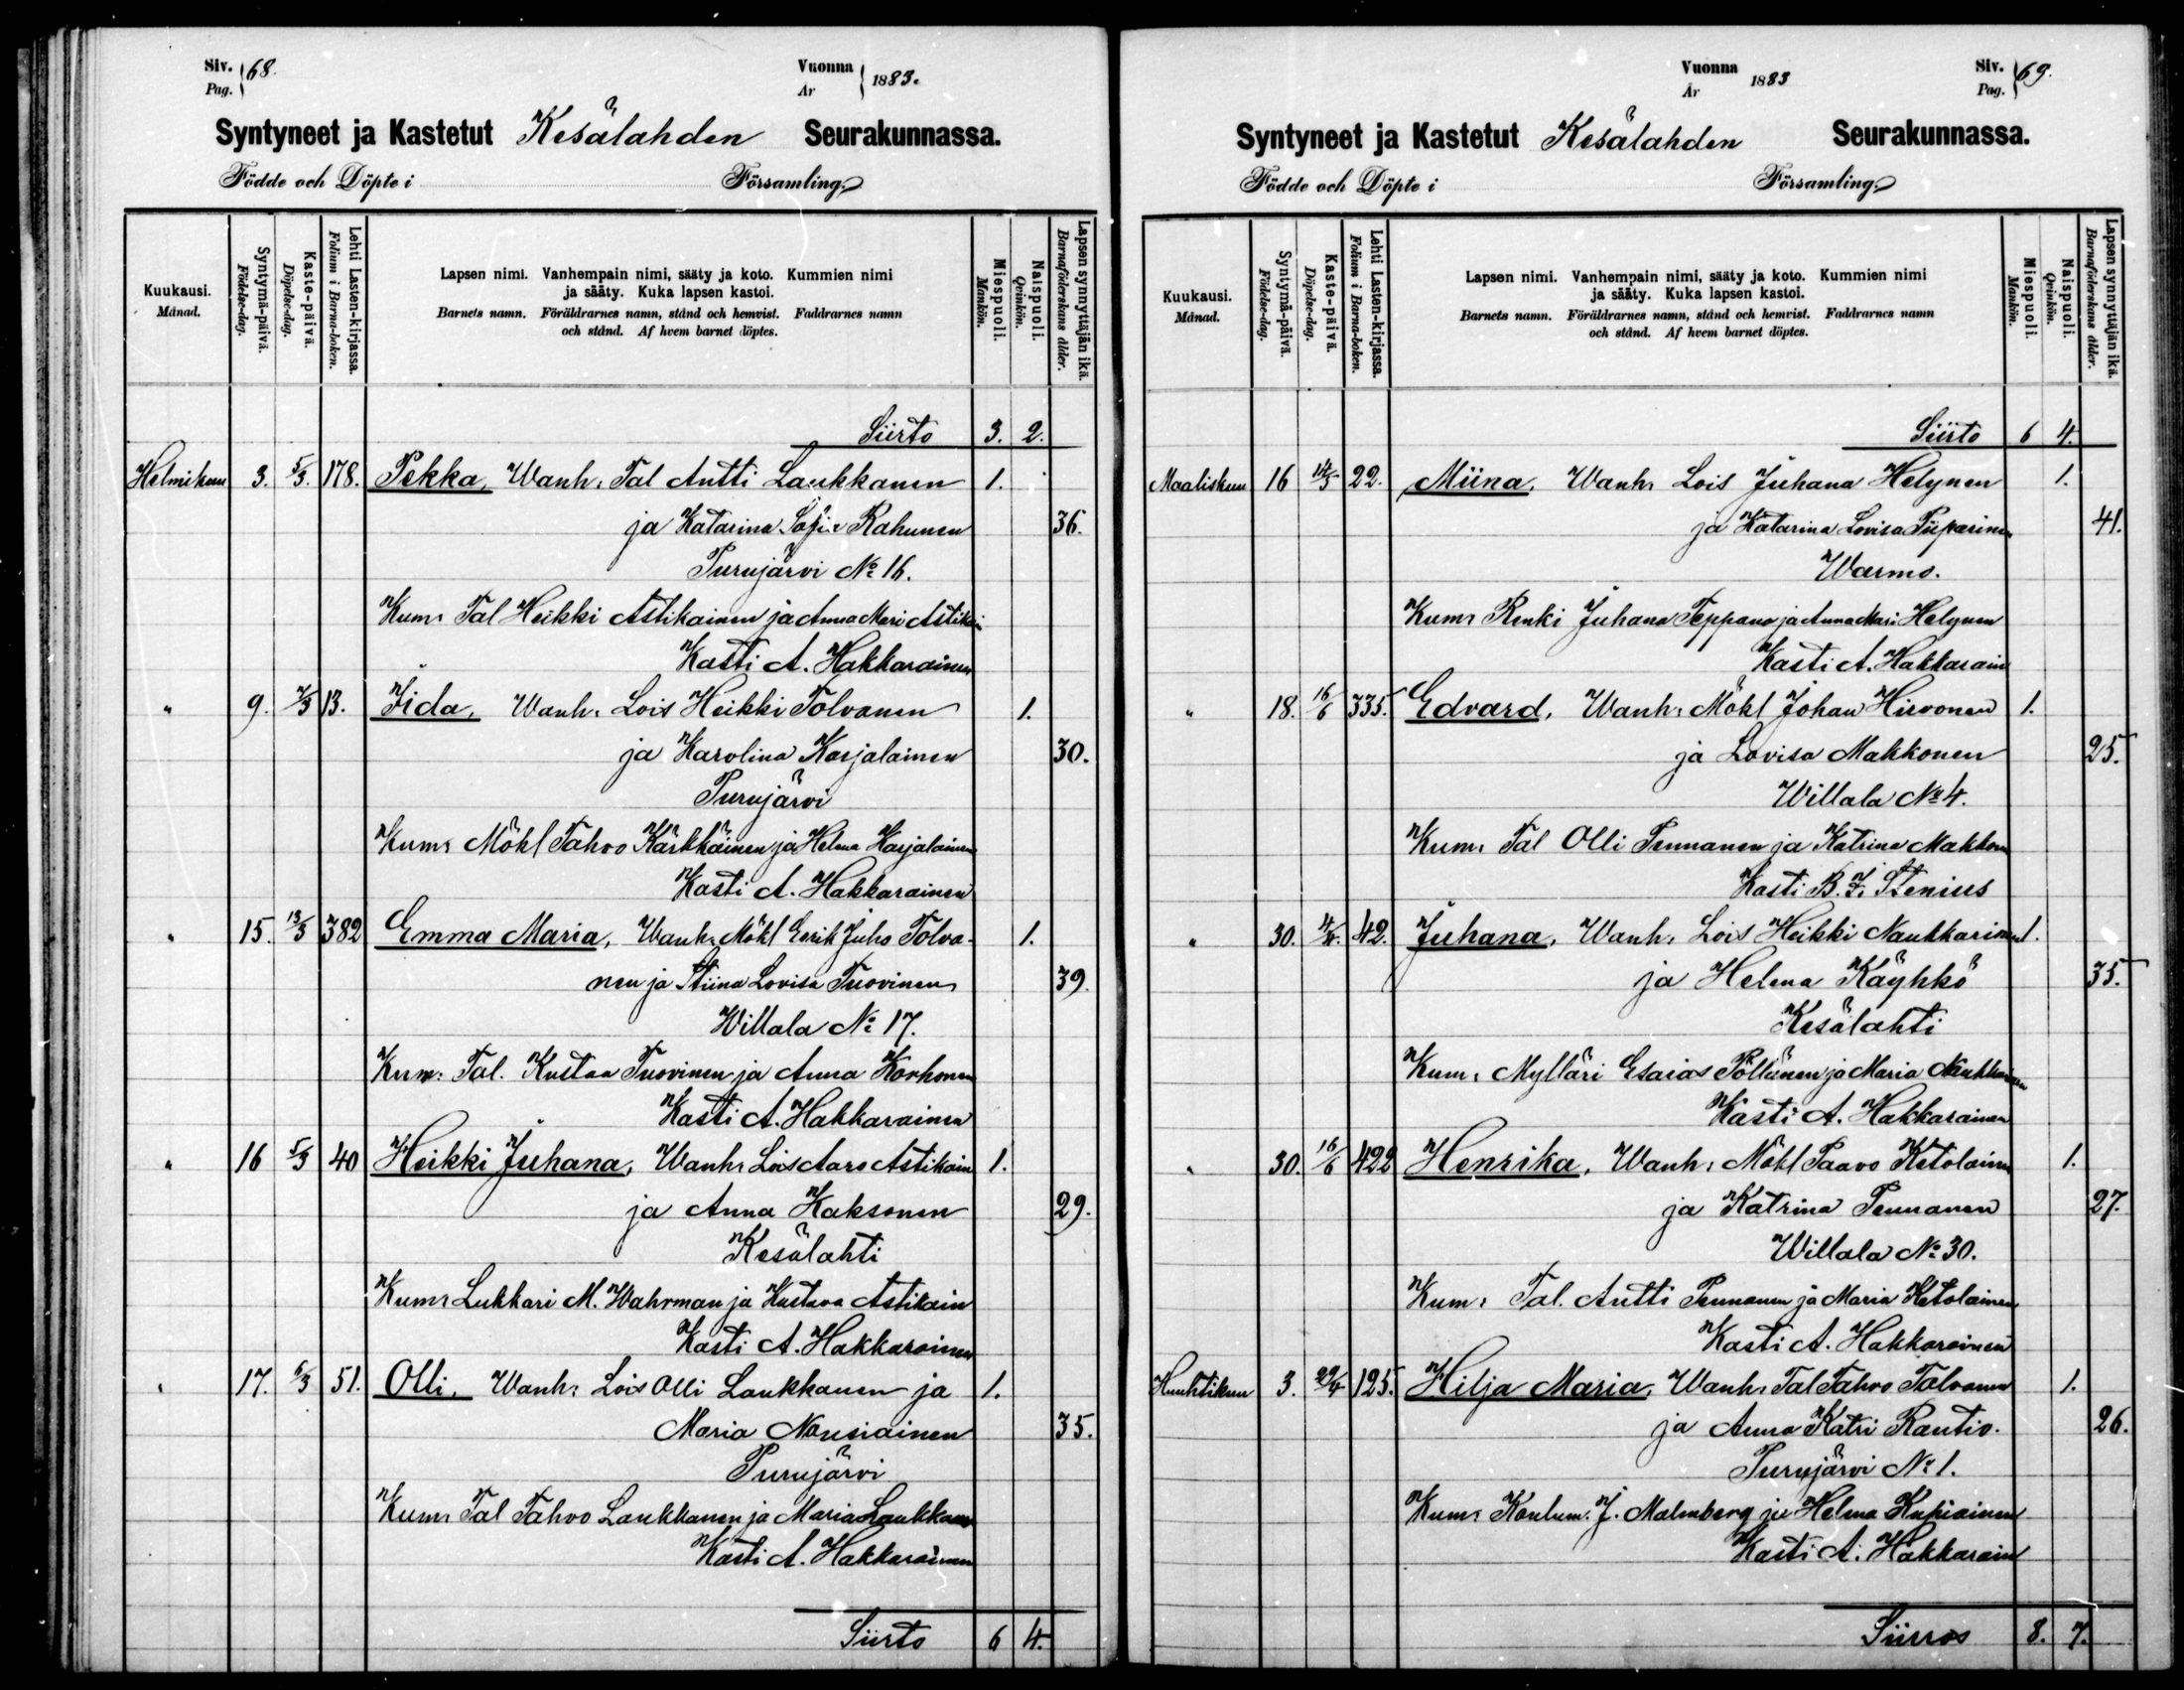 Siv. Pag. } 68.
Vuonna År } 1883.
Syntyneet ja Kastetut Kesälahden Seurakunnassa.
Födde och Döpte i Församling.
Kuukausi. Månad.
Syntymä-päivä. Födelse-dag.
Kaste-päivä. Döpelse-dag.
Lehti Lasten-kirjassa. Folium i Barna-boken.
Lapsen nimi. Vanhempain nimi, sääty ja koto. Kummien nimi
ja sääty. Kuka lapsen kastoi.
Barnets namn. Föräldrarnes namn, stånd och hemvist. Faddrarnes namn
och stånd. Af hvem barnet döptes.
Miespuoli. Mankön.
Naispuoli. Qvinkön.
Lapsen synnyttäjän ikä. Barnaföderskans ålder.
Siirto 3. 2.
Helmikuu 3. 5/3. 178. Pekka, Wanh: Tal Antti Laukkanen 1.
ja Katarina Sofia Rahunen 36.
Purujärvi No 16.
Kum: Tal Heikki Astikainen ja Anna Mari Astikai
Kasti A. Hakkarainen
" 9. 7/3 13. Iida, Wanh: Lois Heikki Tolvanen 1.
ja Karolina Karjalainen 30.
Purujärvi
Kum: Mökl Tahvo Kärkkäinen ja Helena Karjalainen
Kasti A. Hakkarainen
" 15. 13/3 382 Emma Maria, Wanh: Mökl Eerik Juho Tolva-
nen ja Stiina Lovisa Tuovinen 39.
Willala No 17.
Kum: Tal. Kustaa Tuovinen ja Anna Korhonen
Kasti A. Hakkarainen
" 16 5/3 40 Heikki Juhana, Wanh: Lois Aaro Astikain 1.
ja Anna Haksonen 29.
Kesälahti
Kum: Lukkari M. Wahrman ja Kustava Astikain
Kasti A. Hakkarainen
" 17. 6/3 51. Olli, Wanh: Lois Olli Laukkanen ja 1.
Maria Nousiainen 35.
Purujärvi
Kum: Tal Tahvo Laukkanen ja Maria Laukkanen
Kasti A. Hakkarainen
Siirto 6 4.
Vuonna År 1883
Siv. Pag. } 69.
Syntyneet ja Kastetut Kesälahden Seurakunnassa.
Födde och Döpte i Församling.
Kuukausi. Månad.
Syntymä-päivä. Födelse-dag.
Kaste-päivä. Döpelse-dag.
Lehti Lasten-kirjassa. Folium i Barna-boken.
Lapsen nimi. Vanhempain nimi, sääty ja koto. Kummien nimi
ja sääty. Kuka lapsen kastoi.
Barnets namn. Föräldrarnes namn, stånd och hemvist. Faddrarnes namn
och stånd. Af hvem barnet döptes.
Miespuoli. Mankön.
Naispuoli. Qvinkön.
Lapsen synnyttäjän ikä. Barnaföderskans ålder.
Siirto 6 4.
Maaliskuu 16 22. Miina, Wanh: Lois Juhana Helynen 1.
ja Katarina Lovisa Piiparinen 41.
Warmo.
Kum: Renki Juhana Teppana ja Anna Mari Helynen
Kasti A. Hakkarain
" 18. 16/6 335. Edvard, Wanh: Mökl Johan Hirvonen 1.
ja Lovisa Makkonen 25.
Willala No 4.
Kum: Tal Olli Pennanen ja Katrina Makkon
Kasti B. F. Stenius
" 30. 4/4. 42. Juhana, Wanh: Lois Heikki Naukkarinen 1.
ja Helena Käyhkö 35.
Kesälahti
Kum: Mylläri Esaias Pöllänen ja Maria Naukkarinen
Kasti A. Hakkarainen
" 30. 16/6 422 Henrika, Wanh: Mökl Paavo Ketolainen 1.
ja Katrina Pennanen 27.
Willala No 30.
Kum: Tal. Antti Pennanen ja Maria Ketolainen
Kasti A. Hakkarainen
Huuhtikuu 3. 29/4 125. Hilja Maria, Wanh: Tal Tahvo Tolvanen 1.
ja Anna Katri Rautio. 26.
Purujärvi No 1.
Kum: Koulum. J. Malmberg ja Helena Kupiainen
Kasti A. Hakkarain
Siirros 8. 7.